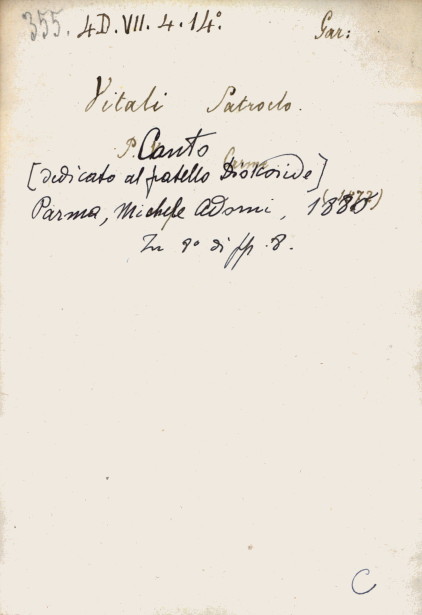 355. 4D. VII. 4. 14° Gar:
Vitali Patroclo.
P. Canto
Parma
[dedicato al fratello Dioscoride]
Parma, Michele Adorni, 1880
In 8° di pp. 8.
C